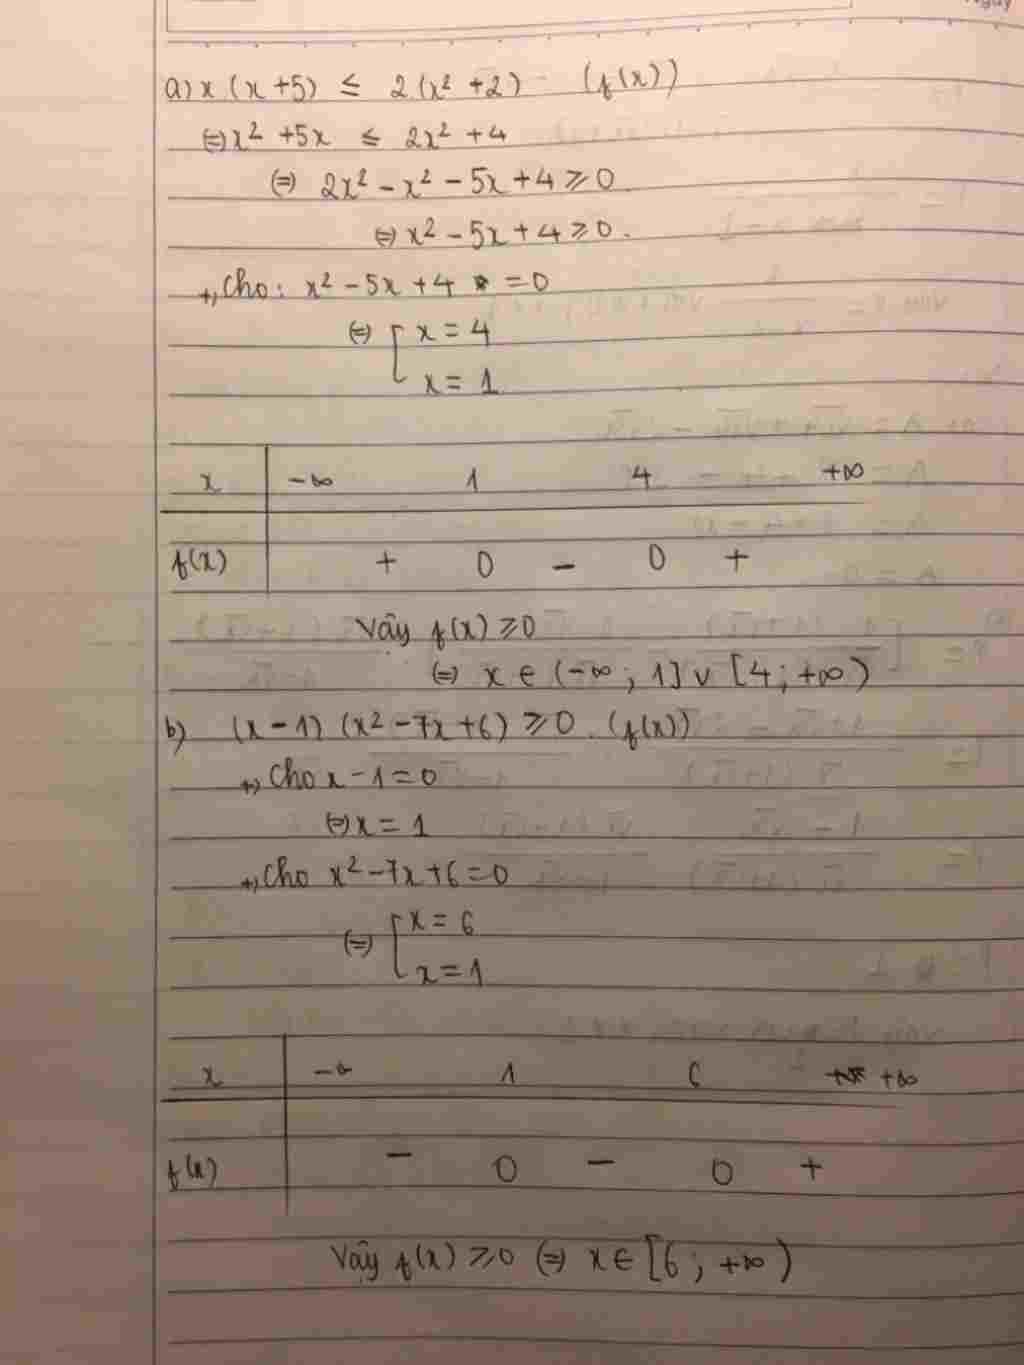 a) x (x+5) ≤ 2(x² +2) (f(x))
⇔ x² +5x ≤ 2x² +4
⇔ 2x² - x² - 5x + 4 ≥ 0
⇔ x² - 5x + 4 ≥ 0.
+, Cho: x² - 5x + 4 = 0
⇔ [ x = 4
x = 1
x -∞ 1 4 +∞
f(x) + 0 - 0 +
Vậy f(x) ≥ 0
⇔ x ∈ (-∞ ; 1] ∨ [4 ; +∞)
b) (x - 1) (x² - 7x + 6) ≥ 0. (f(x))
+, Cho x - 1 = 0
⇔ x = 1
+, Cho x² - 7x + 6 = 0
⇔ [ x = 6
x = 1
x -∞ 1 6 +∞
f(x) - 0 - 0 +
Vậy f(x) ≥ 0 ⇔ x ∈ [6 ; +∞)